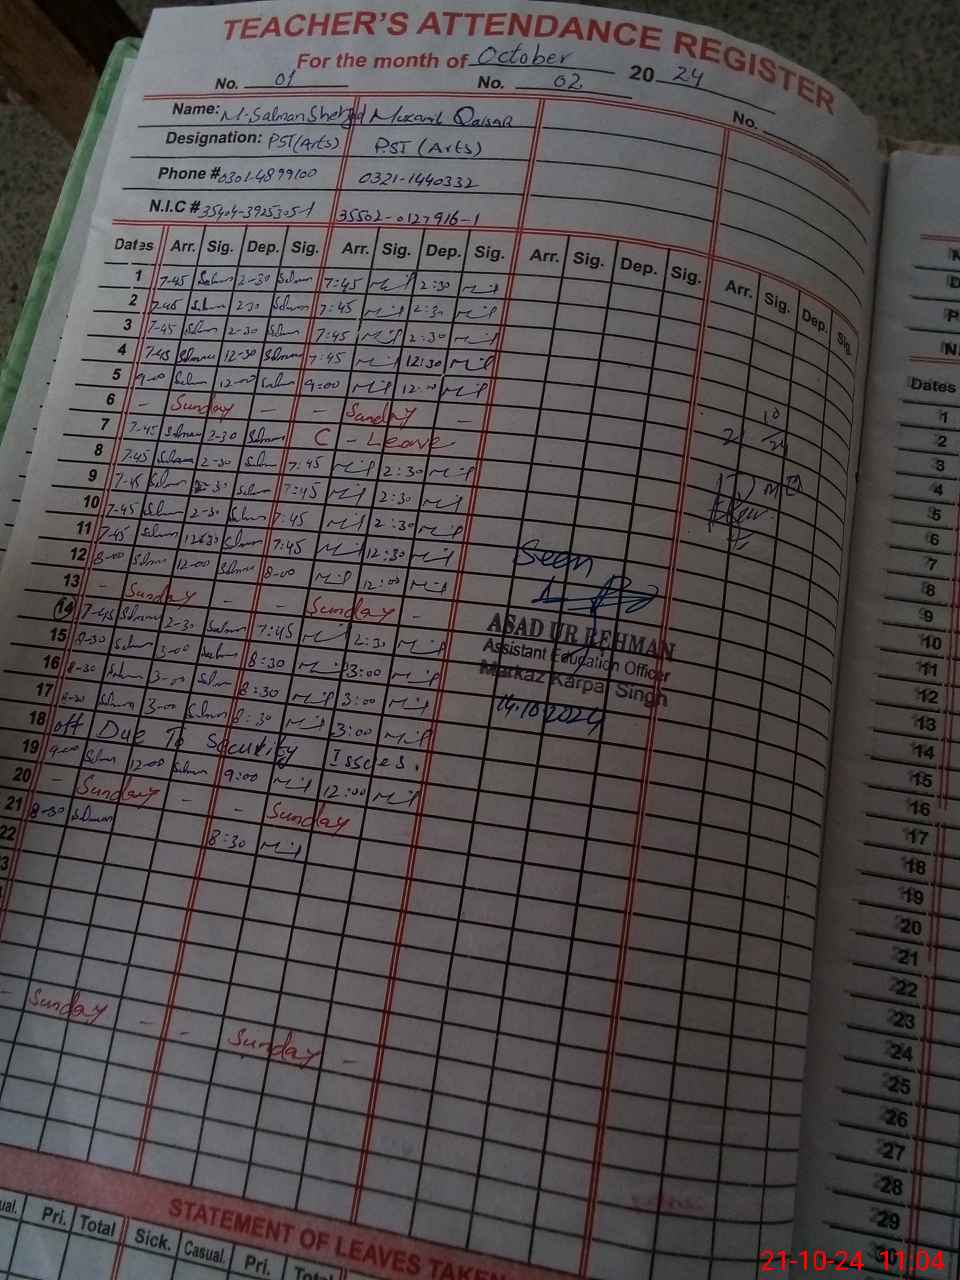 TEACHER'S ATTENDANCE REGISTER
For the month of October 2024
No. 01 No. 02 No.
Name: M. Salman Shehzad Muzamil Qaisar
Designation: PST(Arts) PST (Arts)
Phone # 0301-4899100 0321-1440332
N.I.C # 35404-3925305-1 35502-0127916-1
Dates Arr. Sig. Dep. Sig. Arr. Sig. Dep. Sig. Arr. Sig. Dep. Sig. Arr. Sig. Dep. Sig.
1 7-45 Salman 2-30 Salman 7:45 2:30
2 7-45 Salman 2-30 Salman 7:45 2:30
3 7-45 Salman 2-30 Salman 7:45 2:30
4 7-45 Salman 12-30 Salman 7:45 12:30
5 9-00 Salman 12-00 Salman 9:00 12:00
6 - Sunday - - Sunday -
7 7-45 Salman 2-30 Salman C - Leave
8 7-45 Salman 2-30 Salman 7:45 2:30
9 7-45 Salman 2-30 Salman 7:45 2:30
10 7-45 Salman 2-30 Salman 7:45 2:30
11 7-45 Salman 12-30 Salman 7:45 12:30
12 8-00 Salman 12-00 Salman 8-00 12:00
13 - Sunday - - Sunday -
14 7-45 Salman 2-30 Salman 7:45 2:30
15 8-30 Salman 3-00 Salman 8:30 3:00
16 8-30 Salman 3-00 Salman 8:30 3:00
17 8-30 Salman 3-00 Salman 8:30 3:00
18 off Due To Security Issues.
19 9-00 Salman 12-00 Salman 9:00 12:00
20 - Sunday - - Sunday
21 8-30 Salman 8:30
22
- Sunday - - Sunday -
Seen
ASAD UR REHMAN
Assistant Education Officer
Markaz Karpal Singh
14.10.2024
STATEMENT OF LEAVES TAKEN
Pri. Total Sick. Casual. Pri. Total
Dates
1
2
3
4
5
6
7
8
9
10
11
12
13
14
15
16
17
18
19
20
21
22
23
24
25
26
27
28
29
21-10-24 11:04